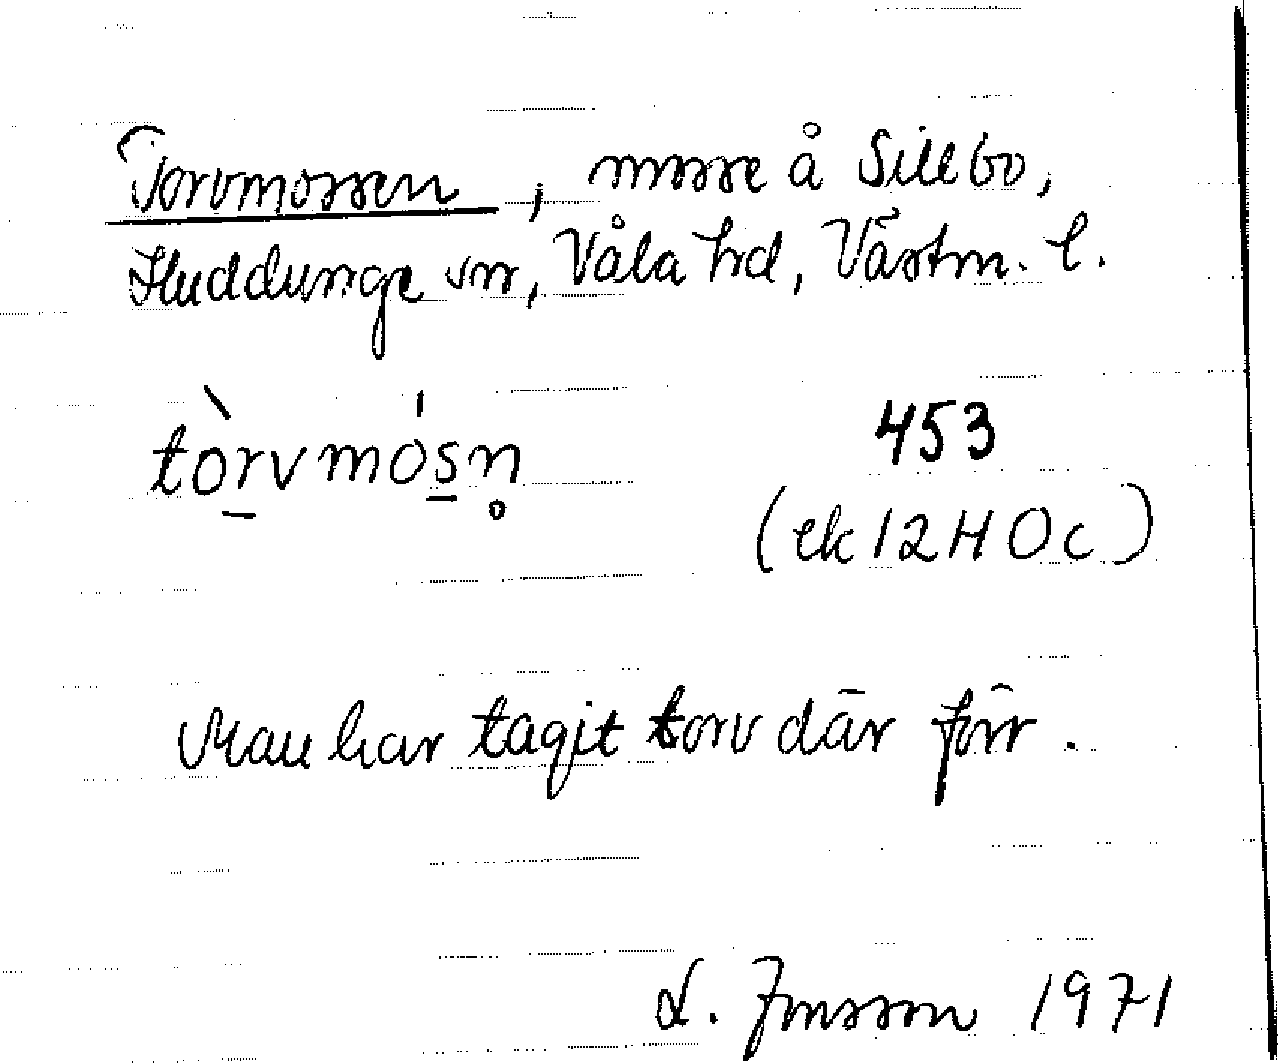 Torvmossen, mosse å Sillbo,
Huddunge sn, Våla hd, Västm. l.
tòrvmósn̥
453
(ek 12 H 0 c)
Man har tagit torv där förr.
L. Jonsson 1971